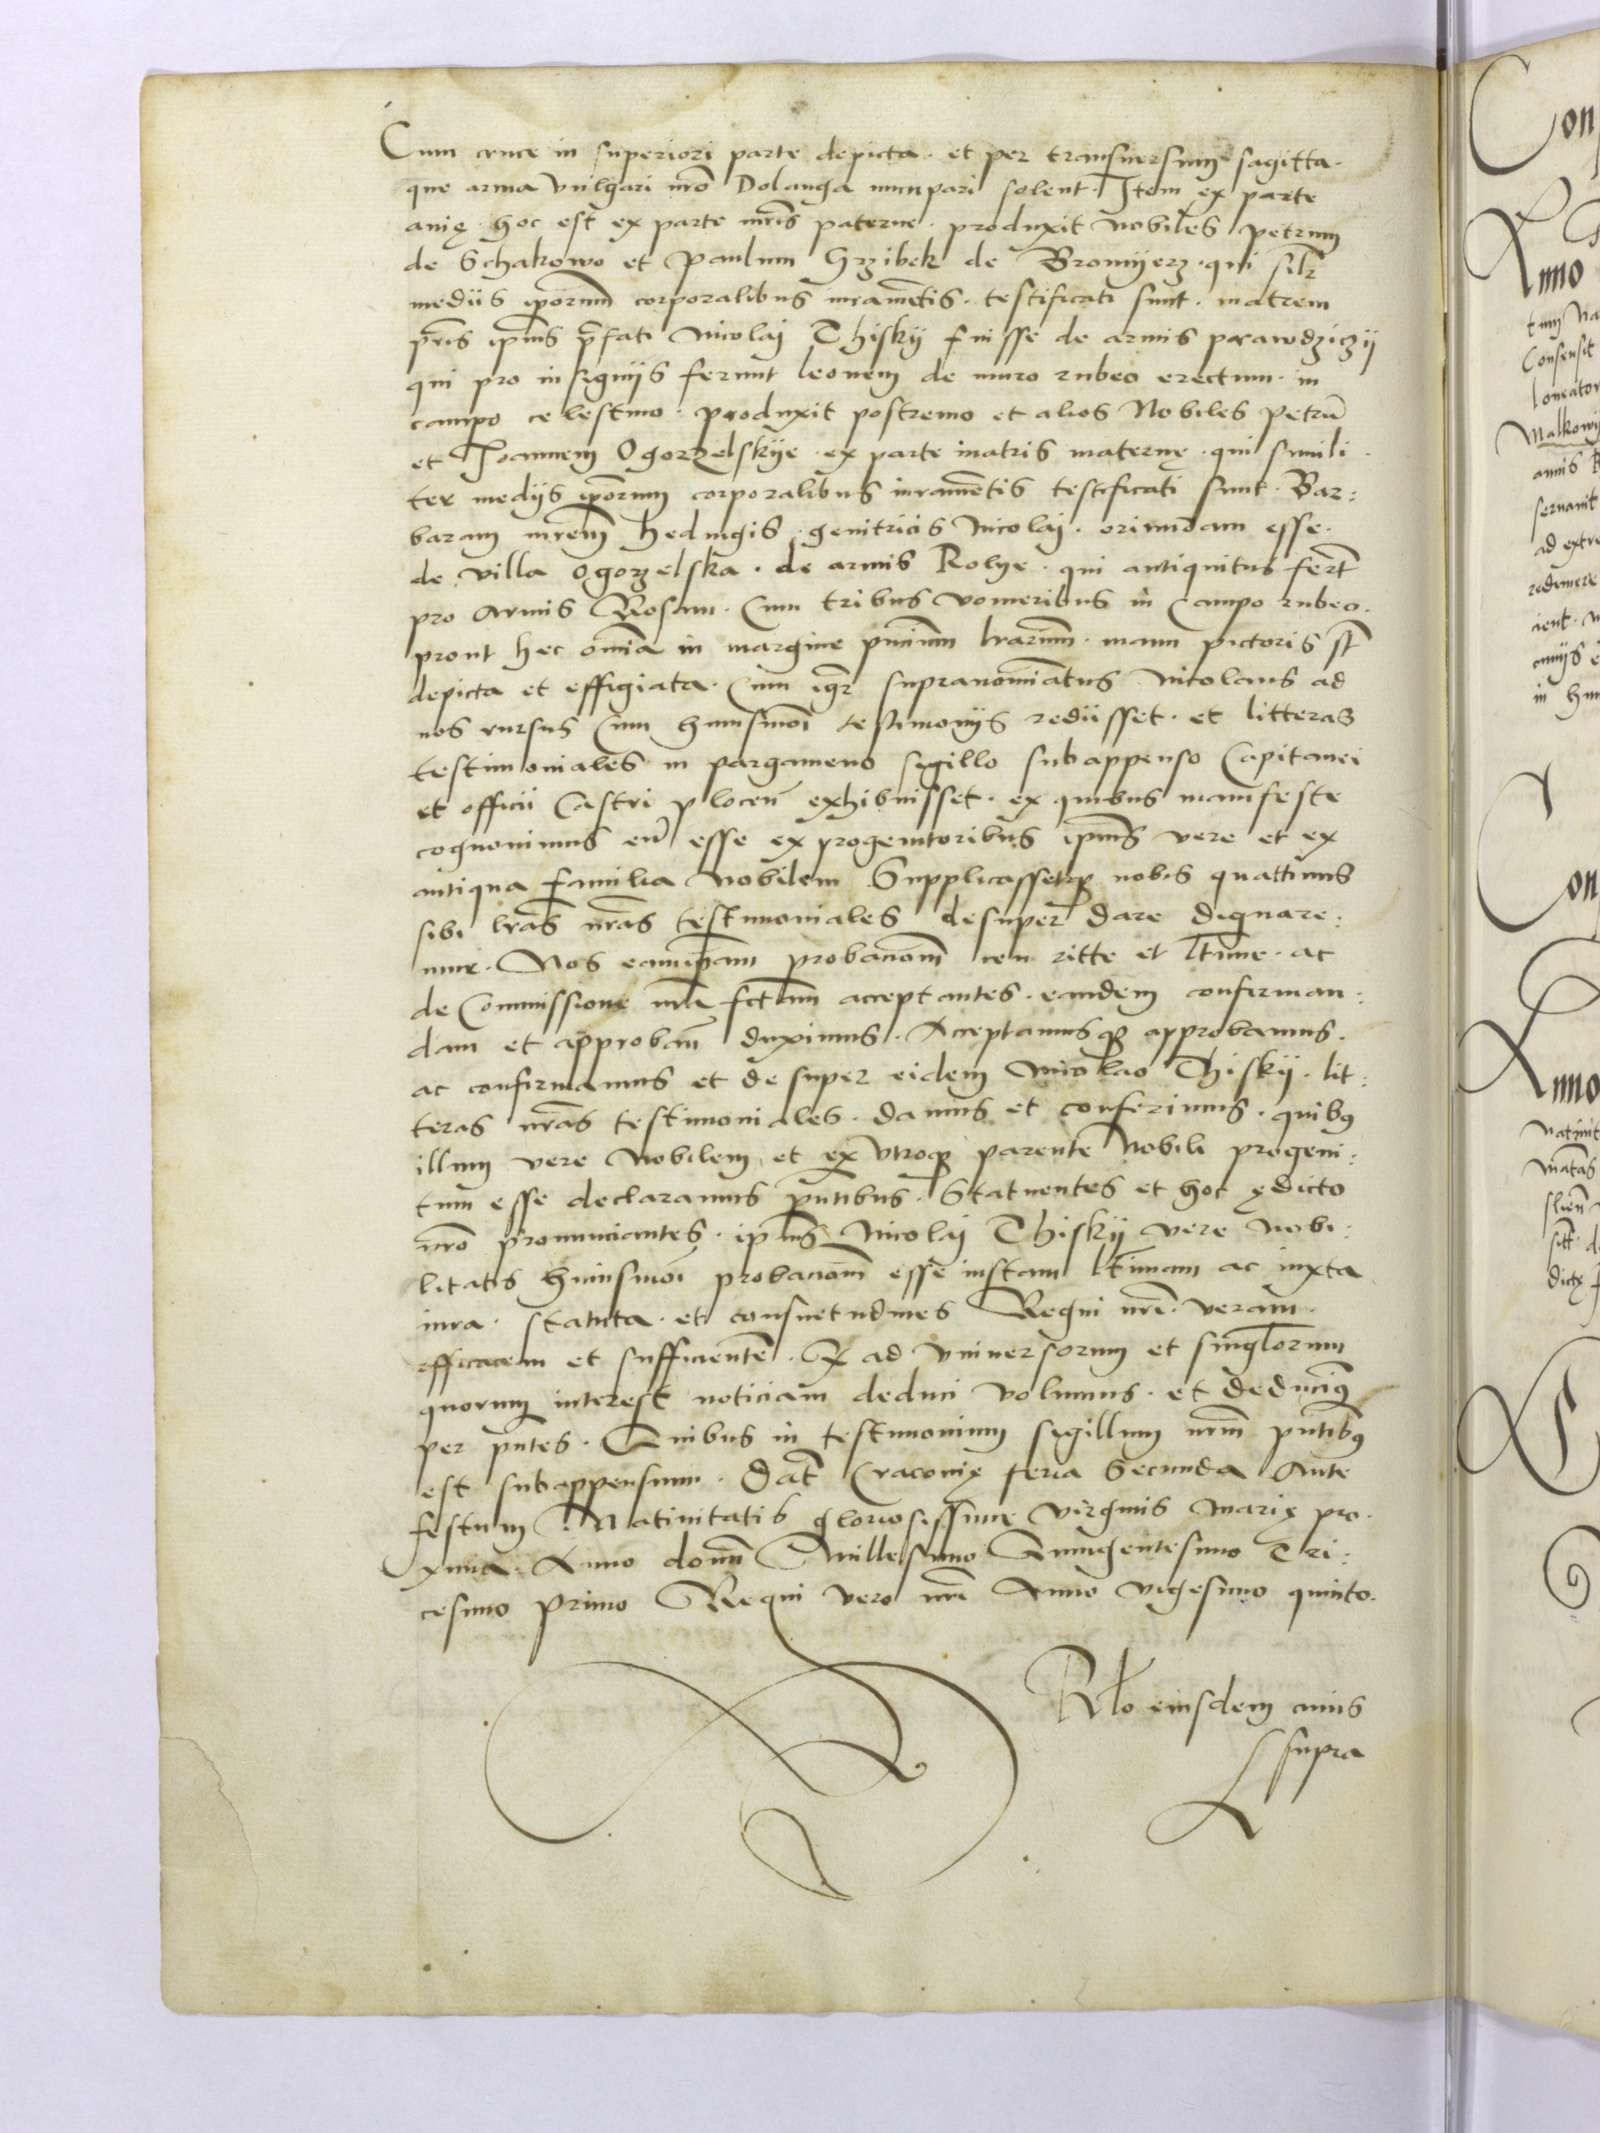 Cum cruce in superiori parte depicta · et per transuersum sagitta ·
que arma vulgari nro Dolanga nuncupari solent · Item ex parte
auię · hoc est ex parte mris paterne · produxit nobiles petrum
de Schakowo et Paulum Grzibek de Bromyerz · qui silr
mediis iporum corporalibus iuramētis · testificati sunt · matrem
pris ipius pfati Nicolaj Thiskij fuisse de armis prawdziczij
qui pro insignijs ferunt leonem de muro rubeo erectum · in
campo celestino · produxit postremo et alios Nobiles Petrū
et Joannem Ogorzelskÿe · ex parte matris maternę · qui simili
ter medijs iporum corporalibus iuramētis testificati sunt · Bar:
baram mrem hedwigis · genitricis Nicolaj · oriundam esse ·
de villa Ogorzelska · de armis Rolye · qui antiquitus fert
pro armis Rosam · Cum tribus vomeribus in Campo rubeo ·
prout hec omnia in margine pntium lrarum · manu pictoris st
depicta et effigiata · Cum igr supranomiatus Nicolaus ad
nos rursus Cum huiusmoi testimonijs rediisset · et litteras
testimoniales in pargameno sigillo subappenso Capitanei
et officii Castri plocen exhibuisset · ex quibus manifeste
cognouimus eū esse ex progenitoribus ipius vere et ex
antiqua familia Nobilem Supplicassetq nobis quattinus
sibi lras nras testimoniales desuper dare dignare:
mur · Nos eamqam probationem ceu ritte et ltime · ac
de Commissione nra fctam acceptantes · eandem confirman:
dam et approbān duximus · Acceptamusq approbamus ·
ac confirmamus et desuper eidem Nicolao Thiskij · lit:
teras nras testimoniales · damus et conferimus · quibus
illum vere Nobilem et ex vtroq parente Nobili progeni:
tum esse declaramus pntibus · Statuentes et hoc ędicto
nro pronunciantes · ipius Nicolaj Thiskij vere Nobi:
litatis huiusmoi probationem esse iustam ltimam ac iuxta
iura · statuta · et consuetudines Regni nri · veram ·
efficacem et sufficientē · Qd ad vniuersorum et singlorum
quorum interest noticiam deduci volumus · et deducimus
per pntes · Quibus in testimonium sigillum nrm pntibus
est subappensum · Dat Cracouię feria Secunda Ante
festum Natiuitatis gloriosissimę Virginis Marię pro·
xima · Anno domi Millesimo Quingentesimo Tri:
cesimo Primo Regni vero nri Anno vigesimo quinto ·
Rlo eiusdem cuius
supra